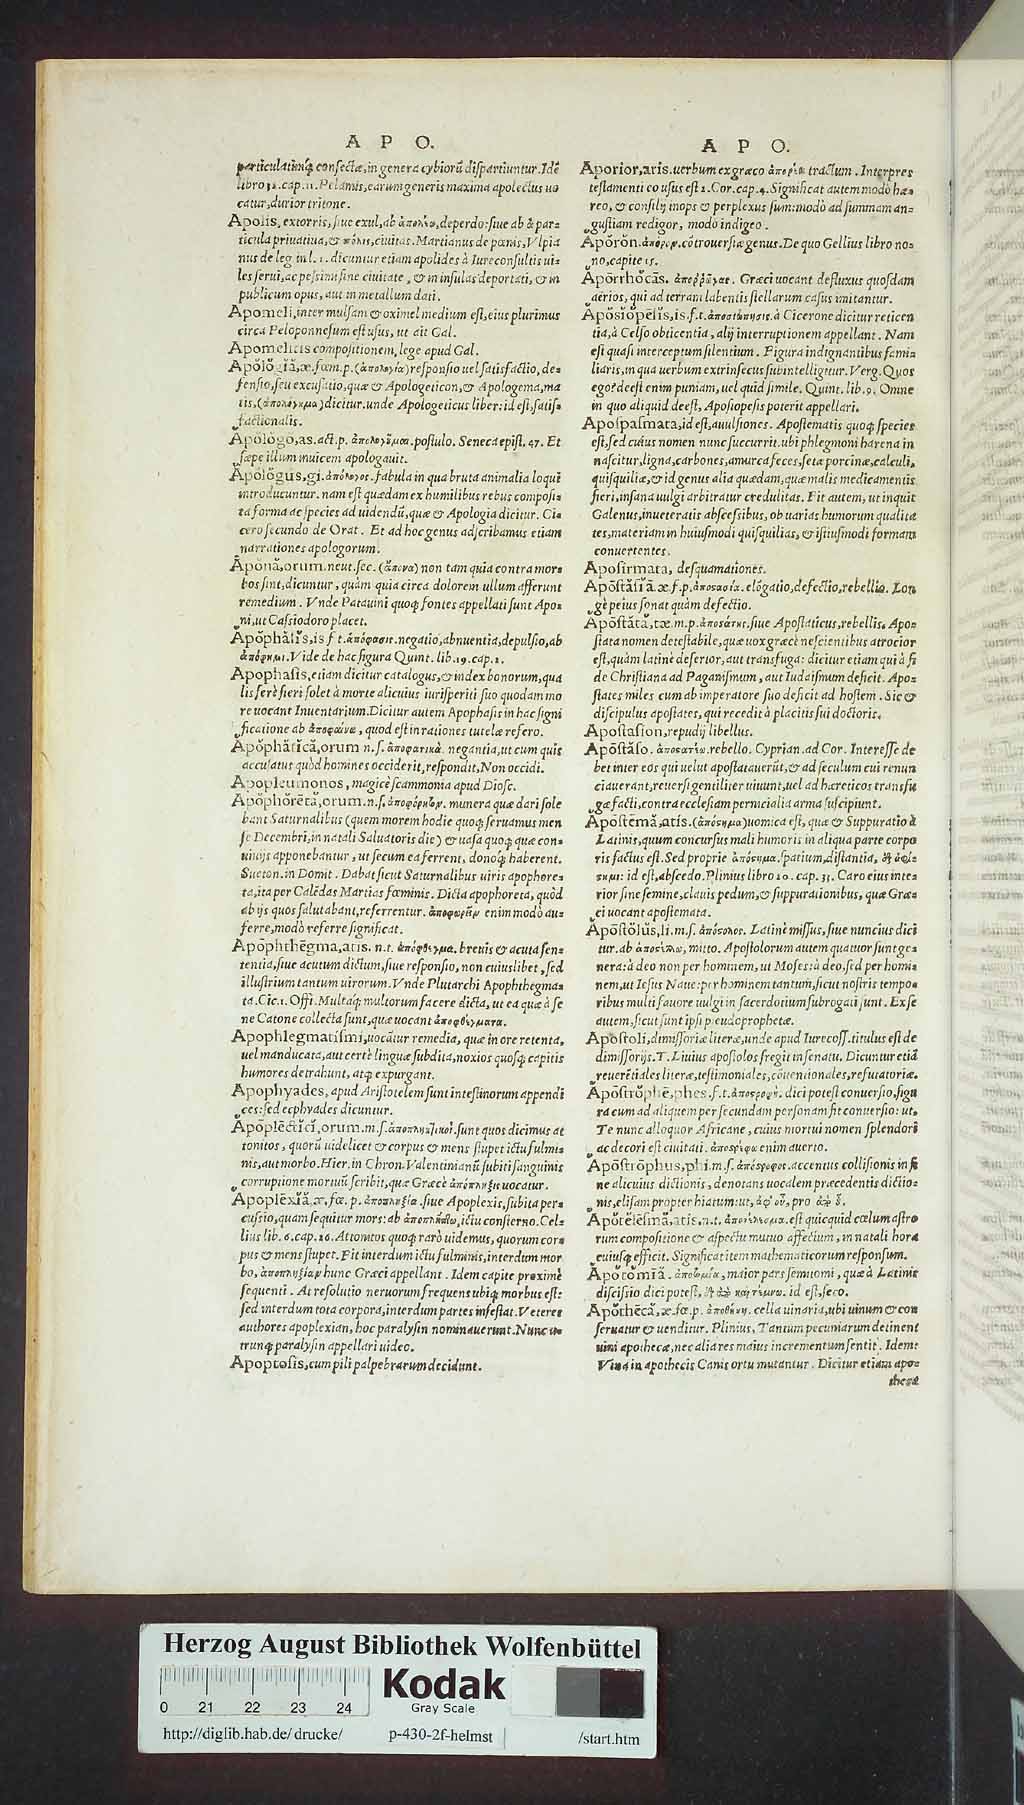 A P O.
particulatimq́; consectæ, in genera cybiorũ dispartiuntur. Idẽ
libro 32. cap. 11. Pelamis, earum generis maxima apolectus uo
catur, durior tritone.
Apolis, extorris, siue exul, ab ἀπολύω, deperdo: siue ab à par-
ticula priuatiua, & πόλις, ciuitas. Martianus de pœnis, Vlpia
nus de leg. in l. 1. dicuntur etiam apolides à Iureconsultis ui-
les serui, ac pessimi sine ciuitate, & in insulas deportati, & in
publicum opus, aut in metallum dati.
Apomeli, inter mulsam & oximel medium est, eius plurimus
circa Peloponnesum est usus, ut ait Gal.
Apomelitis compositionem, lege apud Gal.
Apŏlŏgĭă, æ. fœm. p. (ἀπολογία) responsio uel satisfactio, de-
fensio, seu excusatio, quæ & Apologeticon, & Apologema, ma
tis, (ἀπολόγημα) dicitur. unde Apologeticus liber: id est, satis-
factionalis.
Apŏlŏgo, as. act. p. ἀπολογοῦμαι. postulo. Seneca epist. 47. Et
sæpe illum inuicem apologauit.
Apŏlŏgus, gi. ἀπόλογος. fabula in qua bruta animalia loqui
introducuntur. nam est quædam ex humilibus rebus composi-
ta forma ac species ad uidendũ, quæ & Apologia dicitur. Ci-
cero secundo de Orat. Et ad hoc genus adscribamus etiam
narrationes apologorum.
Apŏnă, orum. neut. sec. (ἄπονα) non tam quia contra mor-
bos sint, dicuntur, quàm quia circa dolorem ullum afferunt
remedium. Vnde Patauini quoq; fontes appellati sunt Apo-
ni, ut Cassiodoro placet.
Apŏphăsĭs, is f. t. ἀπόφασις. negatio, abnuentia, depulsio, ab
ἀπόφημι. Vide de hac figura Quint. lib. 19. cap. 2.
Apophasis, etiam dicitur catalogus, & index bonorum, qua
lis ferè fieri solet à morte alicuius iurisperiti suo quodam mo
re uocant Inuentarium. Dicitur autem Apophasis in hac signi
ficatione ab ἀποφαίνω, quod est in rationes tutelæ refero.
Apŏphătĭcă, orum n. s. ἀποφατικά. negantia, ut cum quis
accusatus quòd homines occiderit, respondit, Non occidi.
Apopleumonos, magicè scammonia apud Diosc.
Apŏphŏrētă, orum. n. s. ἀποφόρητων. munera quæ dari sole
bant Saturnalibus (quem morem hodie quoq; seruamus men
se Decembri, in natali Saluatoris die) & uasa quoq; quæ con-
uiuijs apponebantur, ut secum ea ferrent, donoq́; haberent.
Sueton. in Domit. Dabat sicut Saturnalibus uiris apophore-
ta, ita per Calẽdas Martias fœminis. Dicta apophoreta, quòd
ab ijs quos salutabant, referrentur. ἀποφορεῖν enim modò au-
ferre, modò referre significat.
Apŏphthĕgma, atis. n. t. ἀπόφθεγμα. breuis & acuta sen-
tentia, siue acutum dictum, siue responsio, non cuiuslibet, sed
illustrium tantum uirorum. Vnde Plutarchi Apophthegma-
ta. Cic. 1. Offi. Multaq́; multorum facere dicta, ut ea quæ à se
ne Catone collecta sunt, quæ uocant ἀποφθέγματα.
Apophlegmatismi, uocãtur remedia, quæ in ore retenta,
uel manducata, aut certè linguæ subdita, noxios quosq; capitis
humores detrahunt, atq; expurgant.
Apophyades, apud Aristotelem sunt intestinorum appendi
ces: sed ecphyades dicuntur.
Apŏplēctĭcī, orum. m. s. ἀποπληκτικοὶ. sunt quos dicimus at
tonitos, quorũ uidelicet & corpus & mens stupet ictu fulmi-
nis, aut morbo. Hier. in Chron. Valentinianũ subiti sanguinis
corruptione mortuũ scribit, quæ Græcè ἀπόπληξις uocatur.
Apŏplēxĭă, æ. fœ. p. ἀποπληξία. siue Apoplexis, subita per-
cussio, quam sequitur mors: ab ἀποπλήττω, ictu consterno. Cel-
sius lib. 6. cap. 26. Attonitos quoq; rarò uidemus, quorum cor-
pus & mens stupet. Fit interdum ictu fulminis, interdum mor
bo, ἀποπληξίαν hunc Græci appellant. Idem capite proximè
sequenti. At resolutio neruorum frequens ubiq; morbus est:
sed interdum tota corpora, interdum partes infestat. Veteres
authores apoplexian, hoc paralysin nominauerunt. Nunc u-
trunq; paralysin appellari uideo.
Apoptosis, cum pili palpebrarum decidunt.
A P O.
Aporior, aris. uerbum ex græco ἀπορία tractum. Interpres
testamenti eo usus est 2. Cor. cap. 4. Significat autem modò hæ-
reo, & consilij inops & perplexus sum: modò ad summam an-
gustiam redigor, modò indigeo.
Apŏrŏn. ἄπορον. cõtrouersiæ genus. De quo Gellius libro no-
no, capite 15.
Apŏrrhŏcăs. ἀποῤῥῶγας. Græci uocant defluxus quosdam
aërios, qui ad terram labentis stellarum casus imitantur.
Apŏsĭōpēsis, is. f. t. ἀποσιώπησις. à Cicerone dicitur reticen
tia, à Celso obticentia, alij interruptionem appellant. Nam
est quasi interceptum silentium. Figura indignantibus fami-
liaris, in qua uerbum extrinsecus subintelligitur. Verg. Quos
ego? deest enim puniam, uel quid simile. Quint. lib. 9. Omne
in quo aliquid deest, Aposiopesis poterit appellari.
Apospasmata, id est, auulsiones. Apostematis quoq; species
est, sed cuius nomen nunc succurrit. ubi phlegmoni harena in
nascitur, ligna, carbones, amurca feces, seta porcinæ, calculi,
quisquiliæ, & id genus alia quædam, quæ malis medicamentis
fieri, insana uulgi arbitratur credulitas. Fit autem, ut inquit
Galenus, inueteratis abscessibus, ob uarias humorum qualita
tes, materiam in huiusmodi quisquilias, & istiusmodi formam
conuertentes.
Aposirmata, desquamationes.
Apŏstăsĭă. æ f. p. ἀποστασία. elõgatio, defectio, rebellio. Lon
gè peius sonat quàm defectio.
Apŏstătă, tæ. m. p. ἀποστάτης. siue Apostaticus, rebellis. Apo-
stata nomen detestabile, quæ uox græcè nescientibus atrocior
est, quàm latinè desertor, aut transfuga: dicitur etiam qui à fi
de Christiana ad Paganismum, aut Iudaismum deficit. Apo-
states miles cum ab imperatore suo deficit ad hostem. Sic &
discipulus apostates, qui recedit à placitis sui doctoris.
Apostasion, repudij libellus.
Apŏstăso. ἀποστατέω. rebello. Cyprian. ad Cor. Interesse de
bet inter eos qui uelut apostatauerũt, & ad seculum cui renun
ciauerant, reuersi gentiliter uiuunt, uel ad hæreticos transfu
gæ facti, contra ecclesiam permicialia arma suscipiunt.
Apŏstēmă, atis. (ἀπόστημα) uomica est, quæ & Suppuratio à
Latinis, quum concursus mali humoris in aliqua parte corpo
ris factus est. Sed propriè ἀπόστημα. spatium, distantia, ἀπὸ ἀφί-
στημι: id est, abscedo. Plinius libro 20. cap. 31. Caro eius inte-
rior sine semine, clauis pedum, & suppurationibus, quæ Græ-
ci uocant apostemata.
Apŏstŏlŭs, li. m. s. ἀπόστολος. Latinè missus, siue nuncius dici
tur. ab ἀποστέλλω, mitto. Apostolorum autem quatuor sunt ge-
nera: à deo non per hominem, ut Moses: à deo, sed per homi-
nem, ut Iesus Naue: per hominem tantum, sicut nostris tempo-
ribus multi fauore uulgi in sacerdotium subrogati sunt. Ex se
autem, sicut sunt ipsi pseudoprophetæ.
Apŏstoli, dimissoriæ literæ, unde apud Iurecoss. titulus est de
dimissorijs. T. Liuius apostolos fregit in senatu. Dicuntur etiã
reuerẽtiales literæ, testimoniales, cõuentionales, refutatoriæ.
Apŏstrŏphē, phes. f. t. ἀποστροφή. dici potest conuersio, figu
ra cum ad aliquem per secundam personam fit conuersio: ut,
Te nunc alloquor Africane, cuius mortui nomen splendori
ac decori est ciuitati. ἀποστρέφω enim auerto.
Apŏstrŏphus, phi. m. s. ἀπόστροφος. accentus collisionis in fi
ne alicuius dictionis, denotans uocalem præcedentis dictio-
nis, elisam propter hiatum: ut, ἀφ' οὗ, pro ἀπὸ οὗ.
Apŏtĕlĕsmă, atis, n. t. ἀποτέλεσμα. est quicquid cœlum astro
rum compositione & aspectu mutuo affectium, in natali hora
cuiusq; efficit. Significat item mathematicorum responsum.
Apŏtŏmĭă. ἀποτομία, maior pars semitomi, quæ à Latinis
discisio dici potest, ἀπὸ τοῦ τέμνω. id est, seco.
Apŏthēcă, æ. fœ. p. ἀποθήκη. cella uinaria, ubi uinum & con
seruatur & uenditur. Plinius, Tantum pecuniarum detinent
uini apothecæ, nec alia res maius incrementum sentit. Idem:
Vina in apothecis Canis ortu mutantur. Dicitur etiam apo-
thecæ
Herzog August Bibliothek Wolfenbüttel
Kodak
Gray Scale
0 21 22 23 24
http://diglib.hab.de/drucke/ p-430-2f-helmst /start.htm